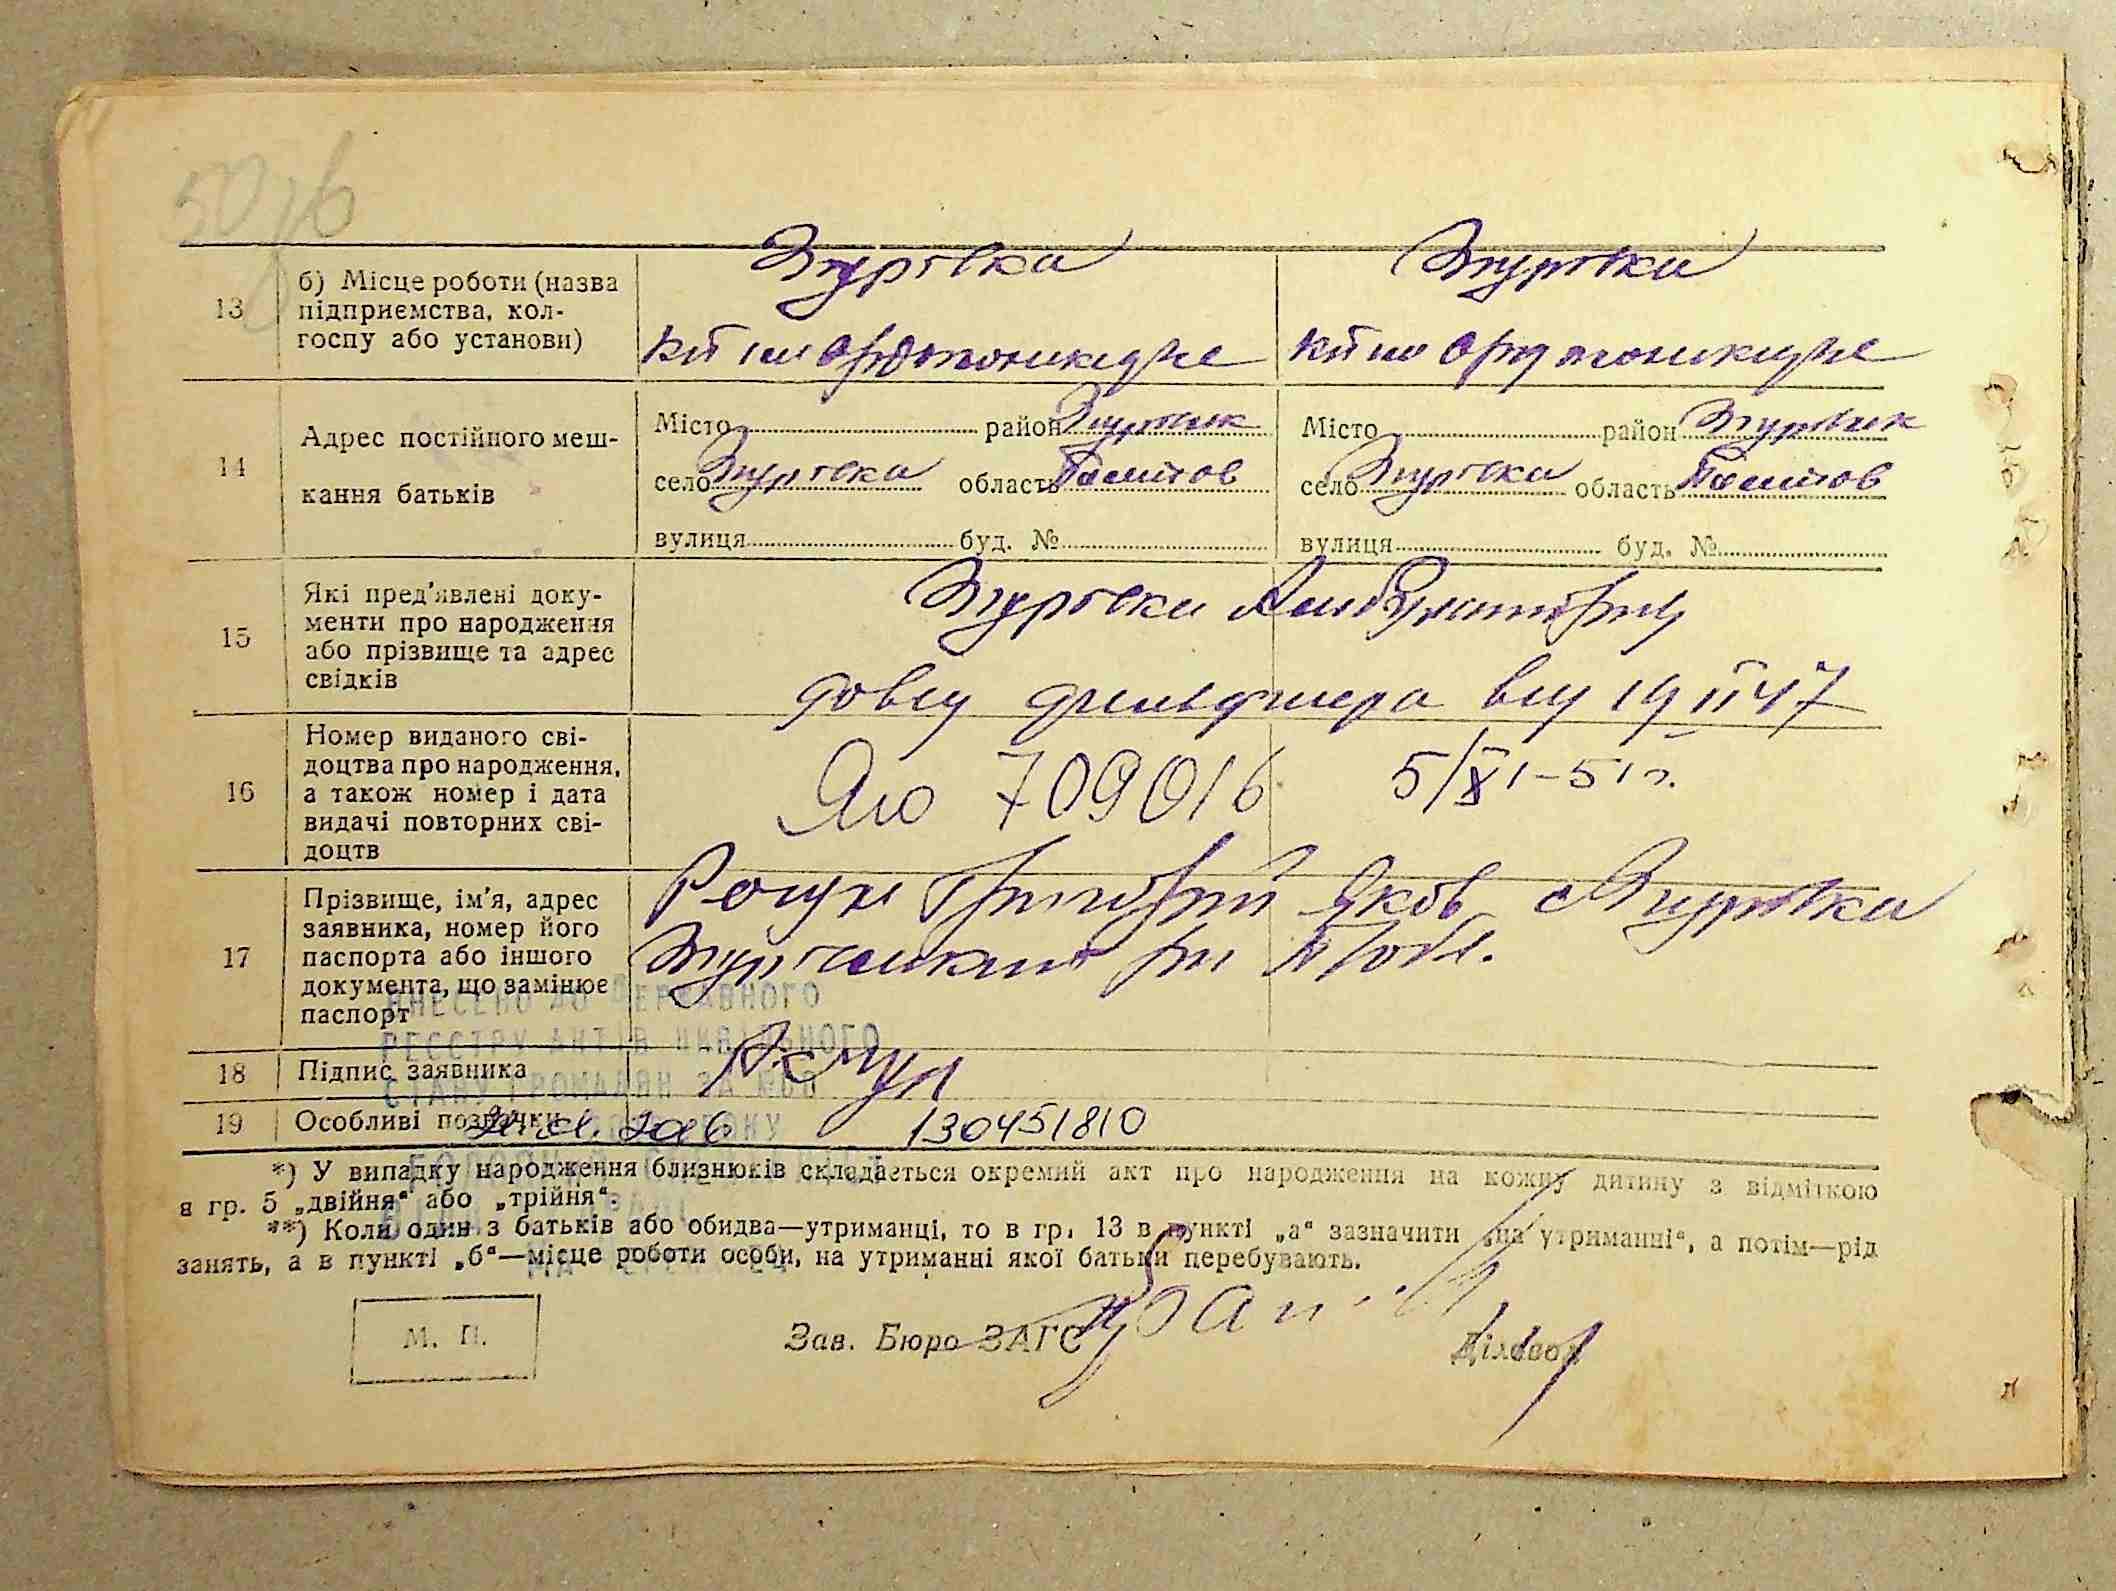 50
13
б) Місце роботи (назва
підприємства, кол-
госпу або установи)
Згурівка
Згурівка
кп ім Орджонікідзе
кп ім Орджонікідзе
14
Адрес постійного меш-
кання батьків
Місто район Згурівськ
село Згурівка область Полтав
вулиця буд. №
Місто район Згурівськ
село Згурівка область Полтав
вулиця буд. №
15
Які пред'явлені доку-
менти про народження
або прізвище та адрес
свідків
Згурівка Амбулаторну
довку фельдшера від 19 II 47
16
Номер виданого сві-
доцтва про народження,
а також номер і дата
видачі повторних сві-
доцтв
ЯЮ 709016 5/XI-51 р.
17
Прізвище, ім'я, адрес
заявника, номер його
паспорта або іншого
документа, що замінює
паспорт
Григорій Яков с Згурівка
р-н П обл.
ВНЕСЕНО ДО ДЕРЖАВНОГО
РЕЄСТРУ АКТІВ ЦИВІЛЬНОГО
СТАНУ ГРОМАДЯН ЗА №
РОКУ
18
Підпис заявника
19
Особливі позначки
130451810
*) У випадку народження близнюків складається окремий акт про народження на кожну дитину з відміткою
в гр. 5 „двійня“ або „трійня“.
**) Коли один з батьків або обидва—утриманці, то в гр. 13 в пункті „а“ зазначити „на утриманні“, а потім—рід
занять, а в пункті „б“—місце роботи особи, на утриманні якої батьки перебувають.
М. П.
Зав. Бюро ЗАГС
Діловод